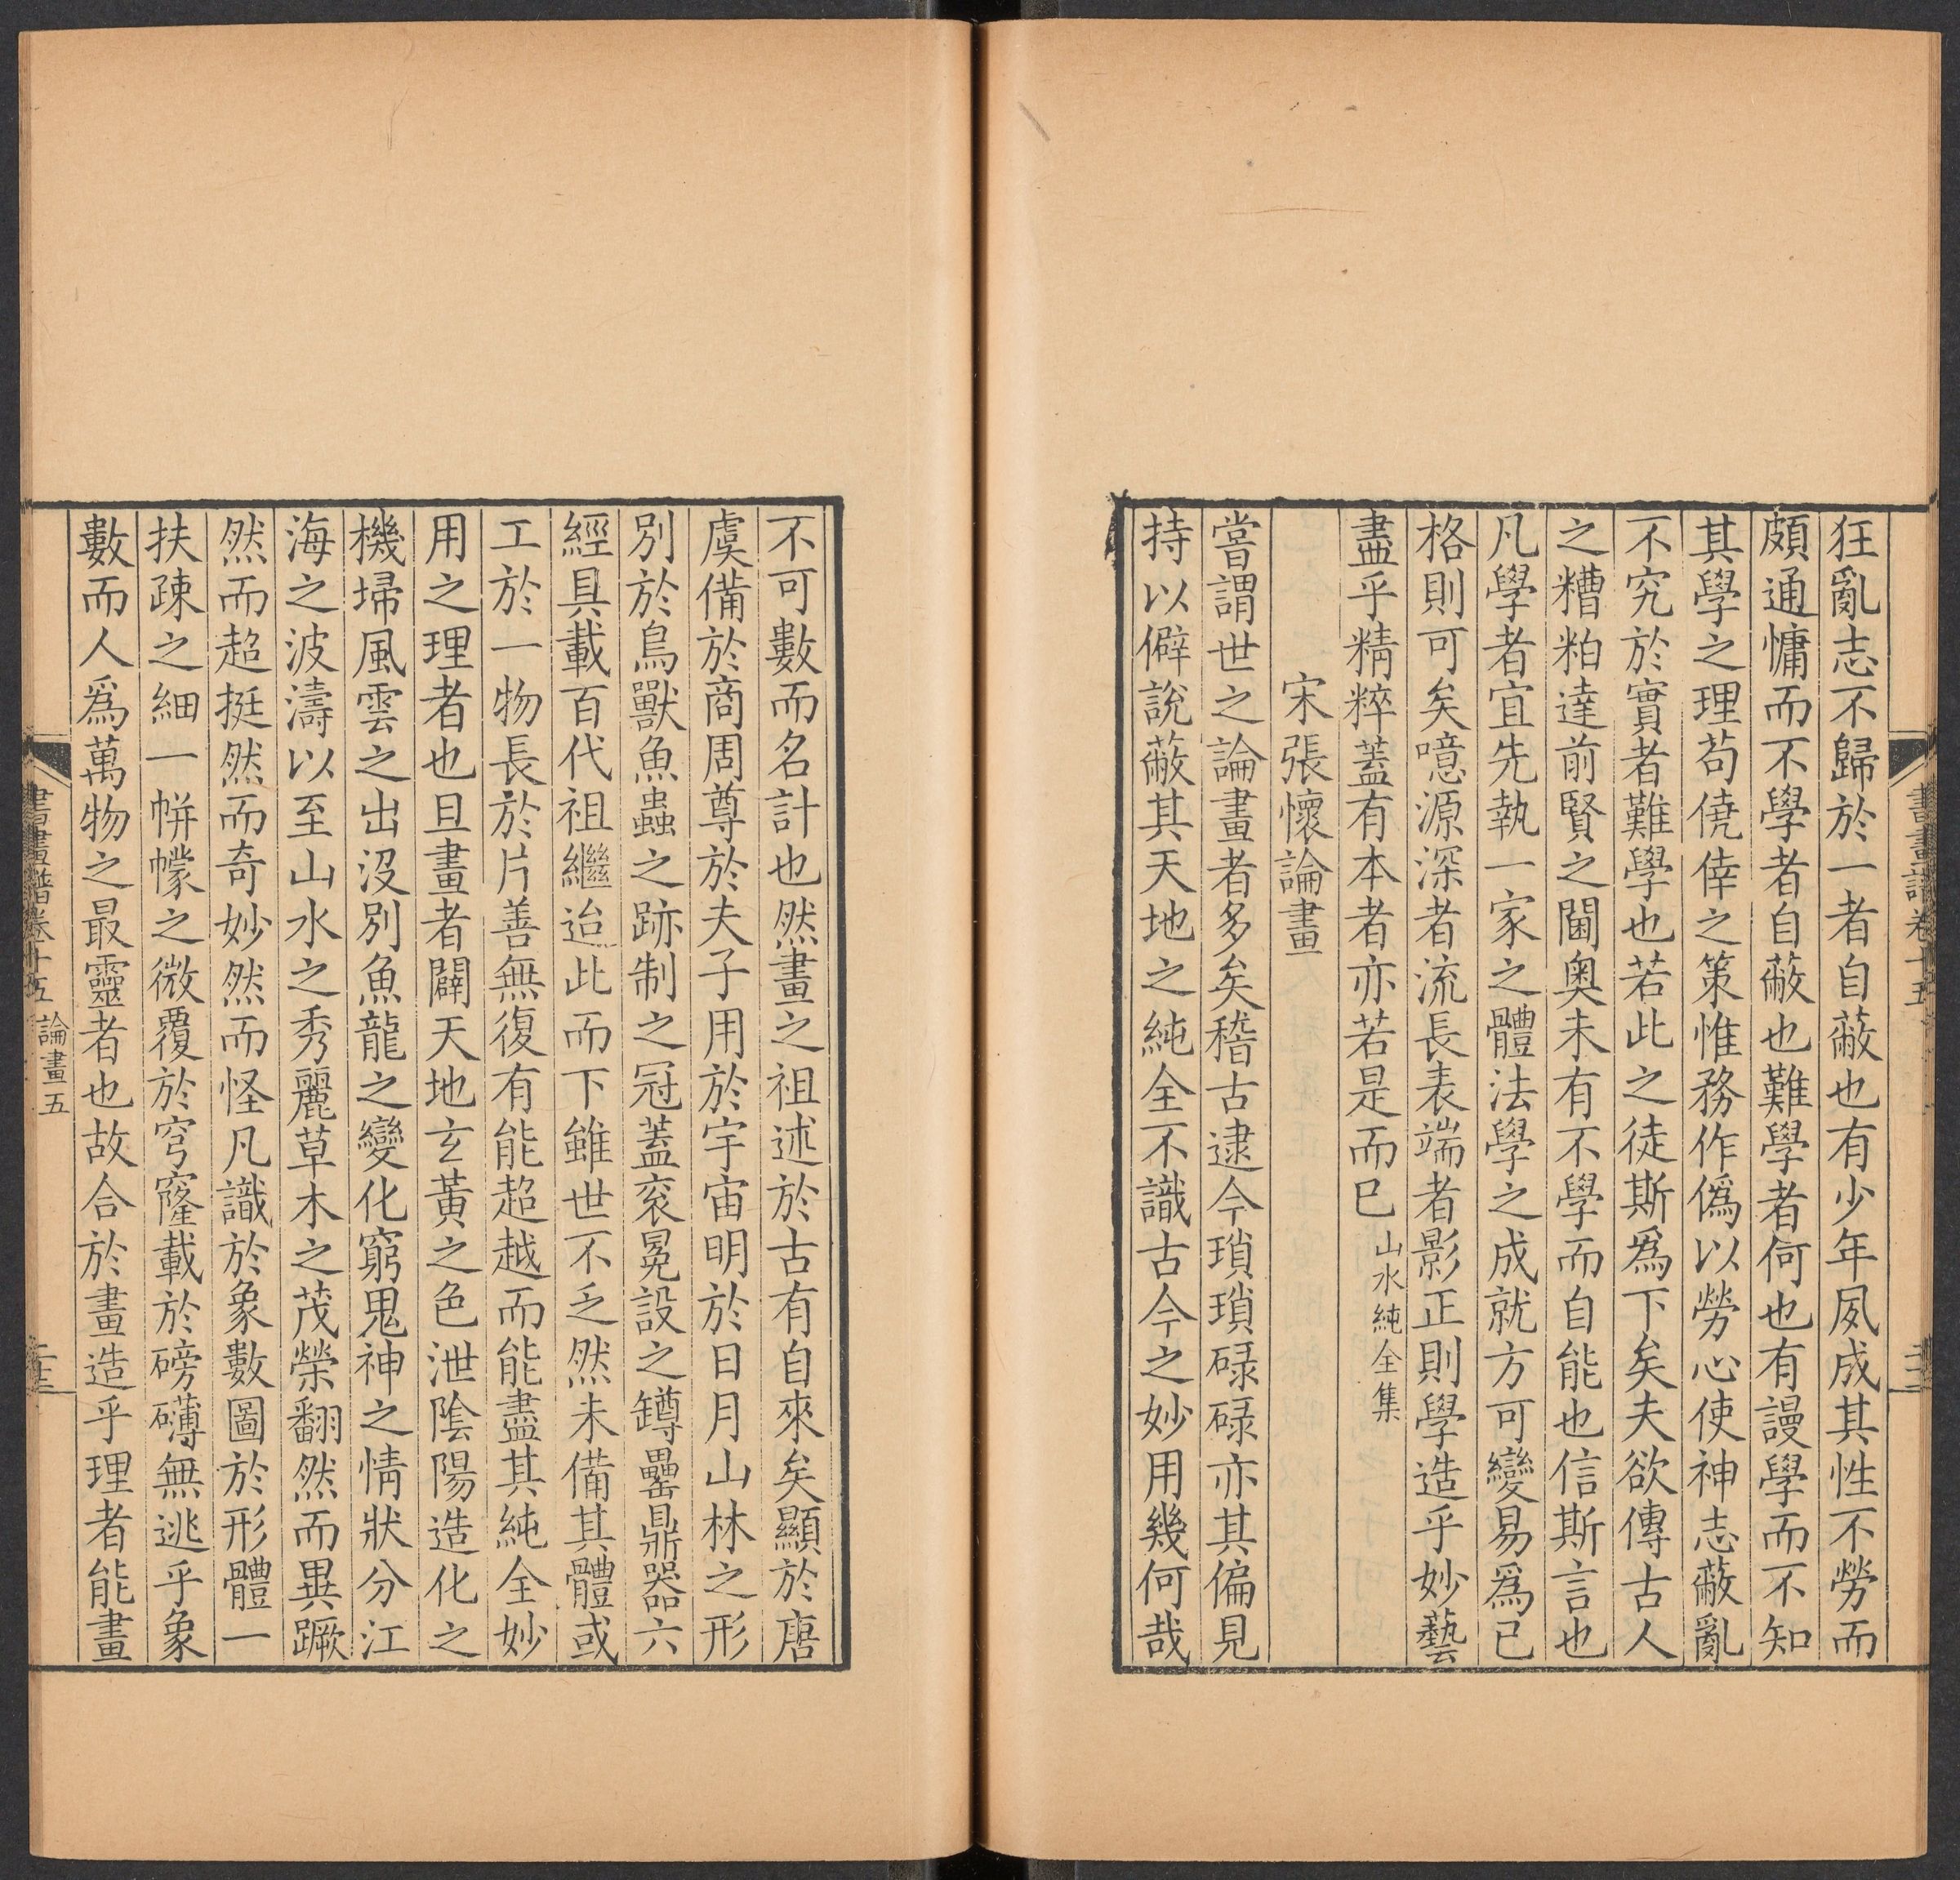 狂亂志不歸於一者自蔽也有少年夙成其性不勞而
頗通慵而不學者自蔽也難學者何也有謾學而不知
其學之理苟僥倖之策惟務作僞以勞心使神志蔽亂
不究於實者難學也若此之徒斯爲下矣夫欲傳古人
之糟粕達前賢之閫奧未有不學而自能也信斯言也
凡學者宜先執一家之體法學之成就方可變易爲已
格則可矣噫源深者流長表端者影正則學造乎妙藝
盡乎精粹蓋有本者亦若是而已 山水純全集
宋張懷論畫
嘗謂世之論畫者多矣稽古逮今瑣瑣碌碌亦其偏見
持以僻說蔽其天地之純全不識古今之妙用幾何哉
不可數而名計也然畫之祖述於古有自來矣顯於唐
虞備於商周尊於夫子用於宇宙明於日月山林之形
別於鳥獸魚蟲之跡制之冠蓋衮冕設之罇罍鼎器六
經具載百代祖繼迨此而下雖世不乏然未備其體或
工於一物長於片善無復有能超越而能盡其純全妙
用之理者也且畫者闢天地玄黃之色泄陰陽造化之
機埽風雲之出沒別魚龍之變化窮鬼神之情狀分江
海之波濤以至山水之秀麗草木之茂榮翻然而異蹶
然而超挺然而奇妙然而怪凡識於象數圖於形體一
扶疎之細一帡幪之微覆於穹窿載於磅礴無逃乎象
數而人爲萬物之最靈者也故合於畫造乎理者能畫
書畫譜卷十五 論畫五